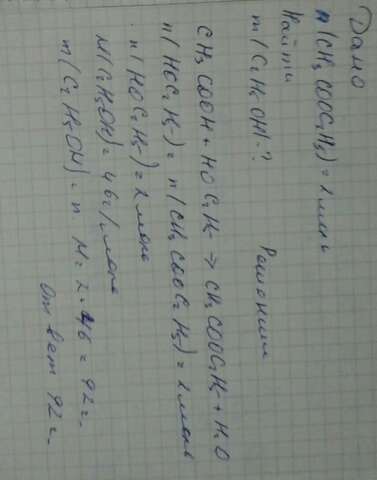 Дано
n(CH₃COOC₂H₅) = 2 моль
Найти
m(C₂H₅OH) - ?
Решение
CH₃COOH + HOC₂H₅ → CH₃COOC₂H₅ + H₂O
n(HOC₂H₅) = n(CH₃COOC₂H₅) = 2 моль
n(HOC₂H₅) = 2 моль
M(C₂H₅OH) = 46 г/моль
m(C₂H₅OH) = n · M = 2 · 46 = 92 г
Ответ 92 г